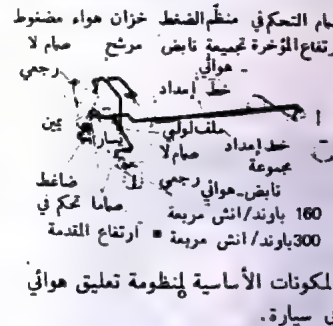 صمام التحكم في منظّم الضغط خزان هواء مضغوط
ارتفاع المؤخرة تجميعة نابض مرشح صمام لا
هوائي رجعي
خط إمداد
ملف لولبي
يمين
يسار
خط إمداد
صمام لا
مجموعة
رجعي
ضاغط
نابض هوائي
صماما تحكم في
160 باوند/انش مربعة
300 باوند/انش مربعة ارتفاع المقدمة
المكونات الأساسية لمنظومة تعليق هوائي
سيارة.